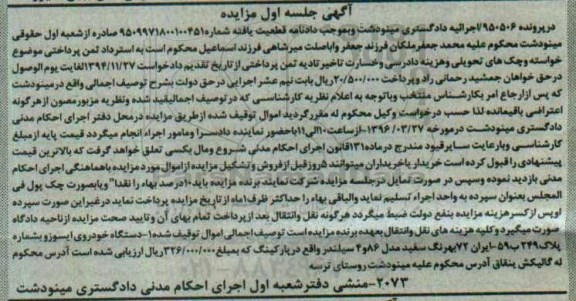 آگهی جلسه اول مزایده
درپرونده ۹۵۰۵۰۶/اجرائیه دادگستری مینودشت وبموجب دادنامه قطعیت یافته شماره ۹۵۰۹۹۷۱۸۰۰۱۰۰۴۵۱ صادره ازشعبه اول حقوقی
مینودشت محکوم علیه محمد جعفرملکان فرزند جعفر واباصلت میرشاهی فرزند اسماعیل محکوم است به استرداد ثمن پرداختی موضوع
خواسته وچک های تحویلی وهزینه دادرسی وخسارت تاخیر تادیه ثمن پرداختی از تاریخ تقدیم دادخواست ۱۳۹۴/۱۱/۲۷لغایت یوم الوصول
درحق خواهان جمشید رحمانی راد وپرداخت ۲۰/۵۰۰/۰۰۰ریال بابت نیم عشر اجرایی در حق دولت بشرح توصیف اجمالی واقع درمینودشت
که پس ازارجاع امر بکارشناس منتخب وباتوجه به اعلام نظریه کارشناسی که در توصیف اجمالیقید شده ونظریه مزبورمصون ازهرگونه
اعتراضی باقیمانده لذا حسب درخواست وکیل محکوم له مقررگردید اموال توقیف شده ازطریق مزایده درمحل دفتر اجرای احکام مدنی
دادگستری مینودشت درمورخه ۱۳۹۶/۰۳/۲۷-ازساعت۱۰الی۱۱باحضور نماینده دادسرا ومامور اجراء انجام میگردد قیمت پایه ازمبلغ
کارشناسی وبارعایت سایرقیود مندرج درماده۱۳۱قانون اجرای احکام مدنی شروع ومال بکسی تعلق خواهد گرفت که بالاترین قیمت
پیشنهادی را قبول کرده است خریدار یاخریداران میتوانند ۵روزقبل ازفروش وتشکیل مزایده ازاموال مورد مزایده باهماهنگی اجرای احکام
مدنی بازدید نموده وسپس در صورت تمایل درجلسه مزایده شرکت نمایند برنده مزایده باید ۱۰درصد بهاء را نقدا" ویابصورت چک پول فی
المجلس بعنوان سپرده به واحد اجراء تسلیم نماید والباقی بهاء را حداکثر ظرف۱ماه از تاریخ مزایده پرداخت نماید درغیراین صورت سپرده
اوپس ازکسرهزینه مزایده بنفع دولت ضبط میگردد هرگونه نقل وانتقال بعد ازپرداخت تمام بهای آن وتایید صحت مزایده ازناحیه دادگاه
صورت میگیرد وکلیه هزینه های نقل وانتقال بعهده برنده مزایده است توصیف اجمالی اموال توقیف شده ۱-دستگاه خودروی ایسوزوبشماره
پلاک۲۴۹ ب۵۹-ایران ۷۲بهرنگ سفید مدل ۸۶و۴ سیلندر واقع درپارکینگ که بمبلغ۳۲۶/۰۰۰/۰۰۰ریال ارزیابی شده است آدرس محکوم
له گالیکش ینقاق آدرس محکوم علیه مینودشت روستای ترسه
۲۰۷۳-منشی دفترشعبه اول اجرای احکام مدنی دادگستری مینودشت